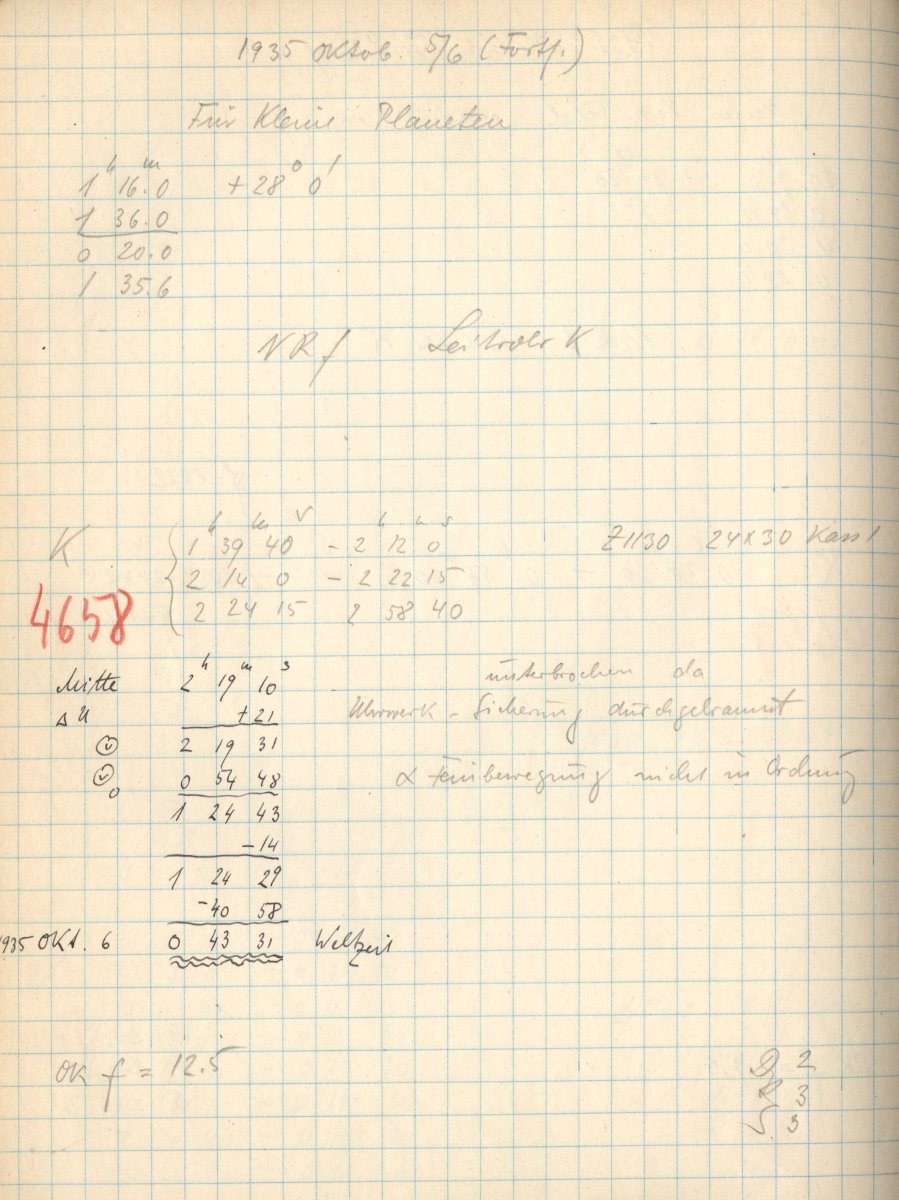 1935 Oktob. 5/6 (Forts.)
Für Kleine Planeten
1 h 16.0 m + 28° 0'
1 36.0
0 20.0
1 35.6
NR f Leitrohr K
K 1 h 39 m 40 s - 2 h 12 m 0 s Z1130 24x30 Kass 1
2 14 0 - 2 22 15
4658 2 24 15 2 58 40
Mitte 2 h 19 m 10 s unterbrochen da
Δ u + 21 Uhrwerk - Sicherung durchgebrannt
2 19 31
0 0 54 48 α Feinbewegung nicht in Ordnung
1 24 43
- 14
1 24 29
- 40 58
1935 Okt. 6 0 43 31 Weltzeit
OK f = 12.5
2
R 3
S 3